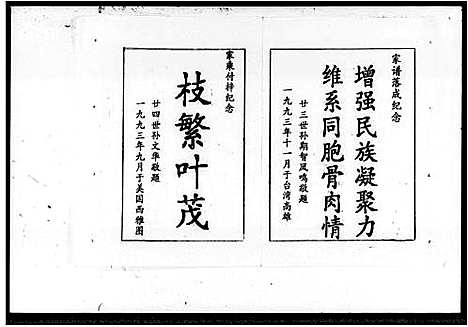 家谱落成纪念
增强民族凝聚力
维系同胞骨肉情
廿三世孙期智凤鸣敬题
一九九三年十一月于台湾高雄
家乘付梓纪念
枝繁叶茂
廿四世孙文华敬题
一九九三年九月于美国西雅图